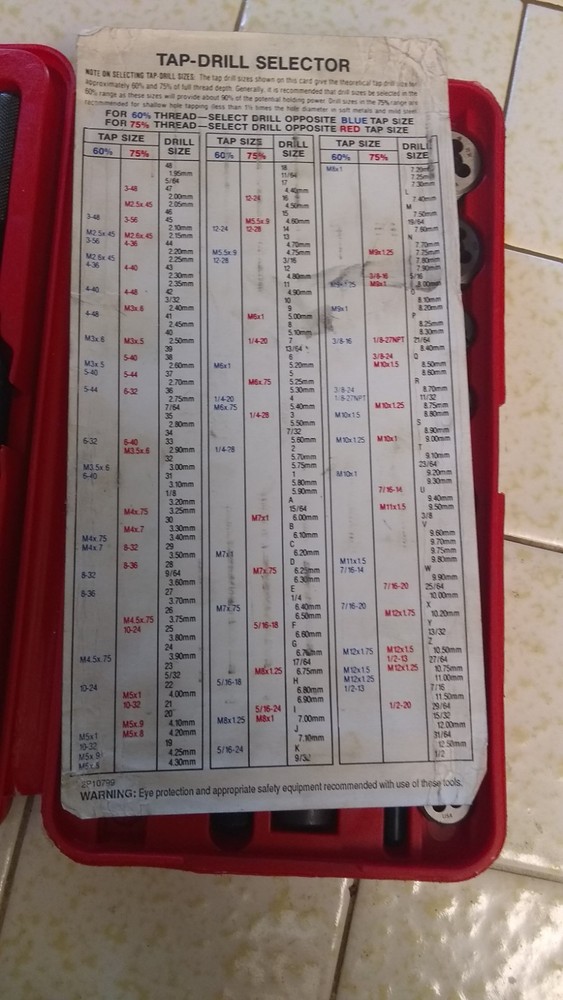 TAP-DRILL SELECTOR
NOTE ON SELECTING TAP DRILL SIZES. The tap drill sizes shown on this card give the theoretical tap drill size for
approximately 60% and 75% of full thread depth. Generally, it is recommended that drill sizes be selected in the
60% range as these sizes will provide about 90% of the potential holding power. Drill sizes in the 75% range are
recommended for shallow hole tapping (less than 1½ times the hole diameter in soft metals and mild steel.
FOR 60% THREAD—SELECT DRILL OPPOSITE BLUE TAP SIZE
FOR 75% THREAD—SELECT DRILL OPPOSITE RED TAP SIZE
TAP SIZE DRILL SIZE TAP SIZE DRILL SIZE TAP SIZE DRILL SIZE
60% 75% 60% 75% 60% 75%
48
1.95mm
5/64
3-48 47
2.00mm
M2.5x.45 2.05mm
46
3-48 3-56 45
2.10mm
M2.5x.45 M2.6x.45 2.15mm
3-56 4-36 44
2.20mm
M2.6x.45 2.25mm
4-36 4-40 43
2.30mm
2.35mm
4-40 4-48 42
3/32
M3x.6 2.40mm
4-48 41
2.45mm
40
M3x.6 M3x.5 2.50mm
39
5-40 38
M3x.5 2.60mm
5-40 5-44 37
2.70mm
5-44 6-32 36
2.75mm
7/64
35
2.80mm
34
6-32 6-40 33
M3.5x.6 2.90mm
32
M3.5x.6 3.00mm
6-40 31
3.10mm
1/8
3.20mm
M4x.75 3.25mm
30
M4x.7 3.30mm
M4x.75 3.40mm
M4x.7 8-32 29
3.50mm
8-36 28
8-32 9/64
3.60mm
8-36 27
3.70mm
26
M4.5x.75 3.75mm
10-24 25
3.80mm
24
M4.5x.75 3.90mm
23
5/32
10-24 22
M5x1 4.00mm
10-32 21
20
M5x.9 4.10mm
M5x1 M5x.8 4.20mm
10-32 19
M5x.9 4.25mm
M5x.8 4.30mm
18
11/64
17
4.40mm
12-24 16
4.50mm
15
M5.5x.9 4.60mm
12-24 12-28 14
13
4.70mm
M5.5x.9 4.75mm
12-28 3/16
12
4.80mm
11
4.90mm
10
9
M6x1 5.00mm
8
5.10mm
1/4-20 7
13/64
6
M6x1 5.20mm
5
M6x.75 5.25mm
5.30mm
1/4-20 4
M6x.75 5.40mm
1/4-28 3
5.50mm
7/32
5.60mm
1/4-28 2
5.70mm
5.75mm
1
5.80mm
5.90mm
A
15/64
M7x1 6.00mm
B
6.10mm
C
M7x1 6.20mm
D
M7x.75 6.25mm
6.30mm
E
1/4
M7x.75 6.40mm
6.50mm
5/16-18 F
6.60mm
G
6.70mm
17/64
M8x1.25 6.75mm
5/16-18 H
6.80mm
6.90mm
5/16-24 I
M8x1.25 M8x1 7.00mm
J
7.10mm
5/16-24 K
9/32
M8x1 7.20mm
7.25mm
7.30mm
L
7.40mm
M
7.50mm
19/64
7.60mm
N
7.70mm
M9x1.25 7.75mm
7.80mm
7.90mm
3/8-16 5/16
M9x1.25 M9x1 8.00mm
O
8.10mm
M9x1 8.20mm
P
8.25mm
8.30mm
3/8-16 1/8-27NPT 21/64
8.40mm
3/8-24 Q
M10x1.5 8.50mm
8.60mm
R
3/8-24 8.70mm
1/8-27NPT 11/32
M10x1.25 8.75mm
M10x1.5 8.80mm
S
8.90mm
M10x1.25 M10x1 9.00mm
T
9.10mm
23/64
M10x1 9.20mm
9.30mm
7/16-14 U
9.40mm
M11x1.5 9.50mm
3/8
V
9.60mm
9.70mm
9.75mm
M11x1.5 9.80mm
7/16-14 W
9.90mm
7/16-20 25/64
10.00mm
7/16-20 X
M12x1.75 10.20mm
Y
13/32
Z
M12x1.75 M12x1.5 10.50mm
1/2-13 27/64
M12x1.5 M12x1.25 10.75mm
M12x1.25 11.00mm
1/2-13 7/16
11.50mm
1/2-20 29/64
15/32
12.00mm
31/64
12.50mm
1/2
2P10799
WARNING: Eye protection and appropriate safety equipment recommended with use of these tools.
USA